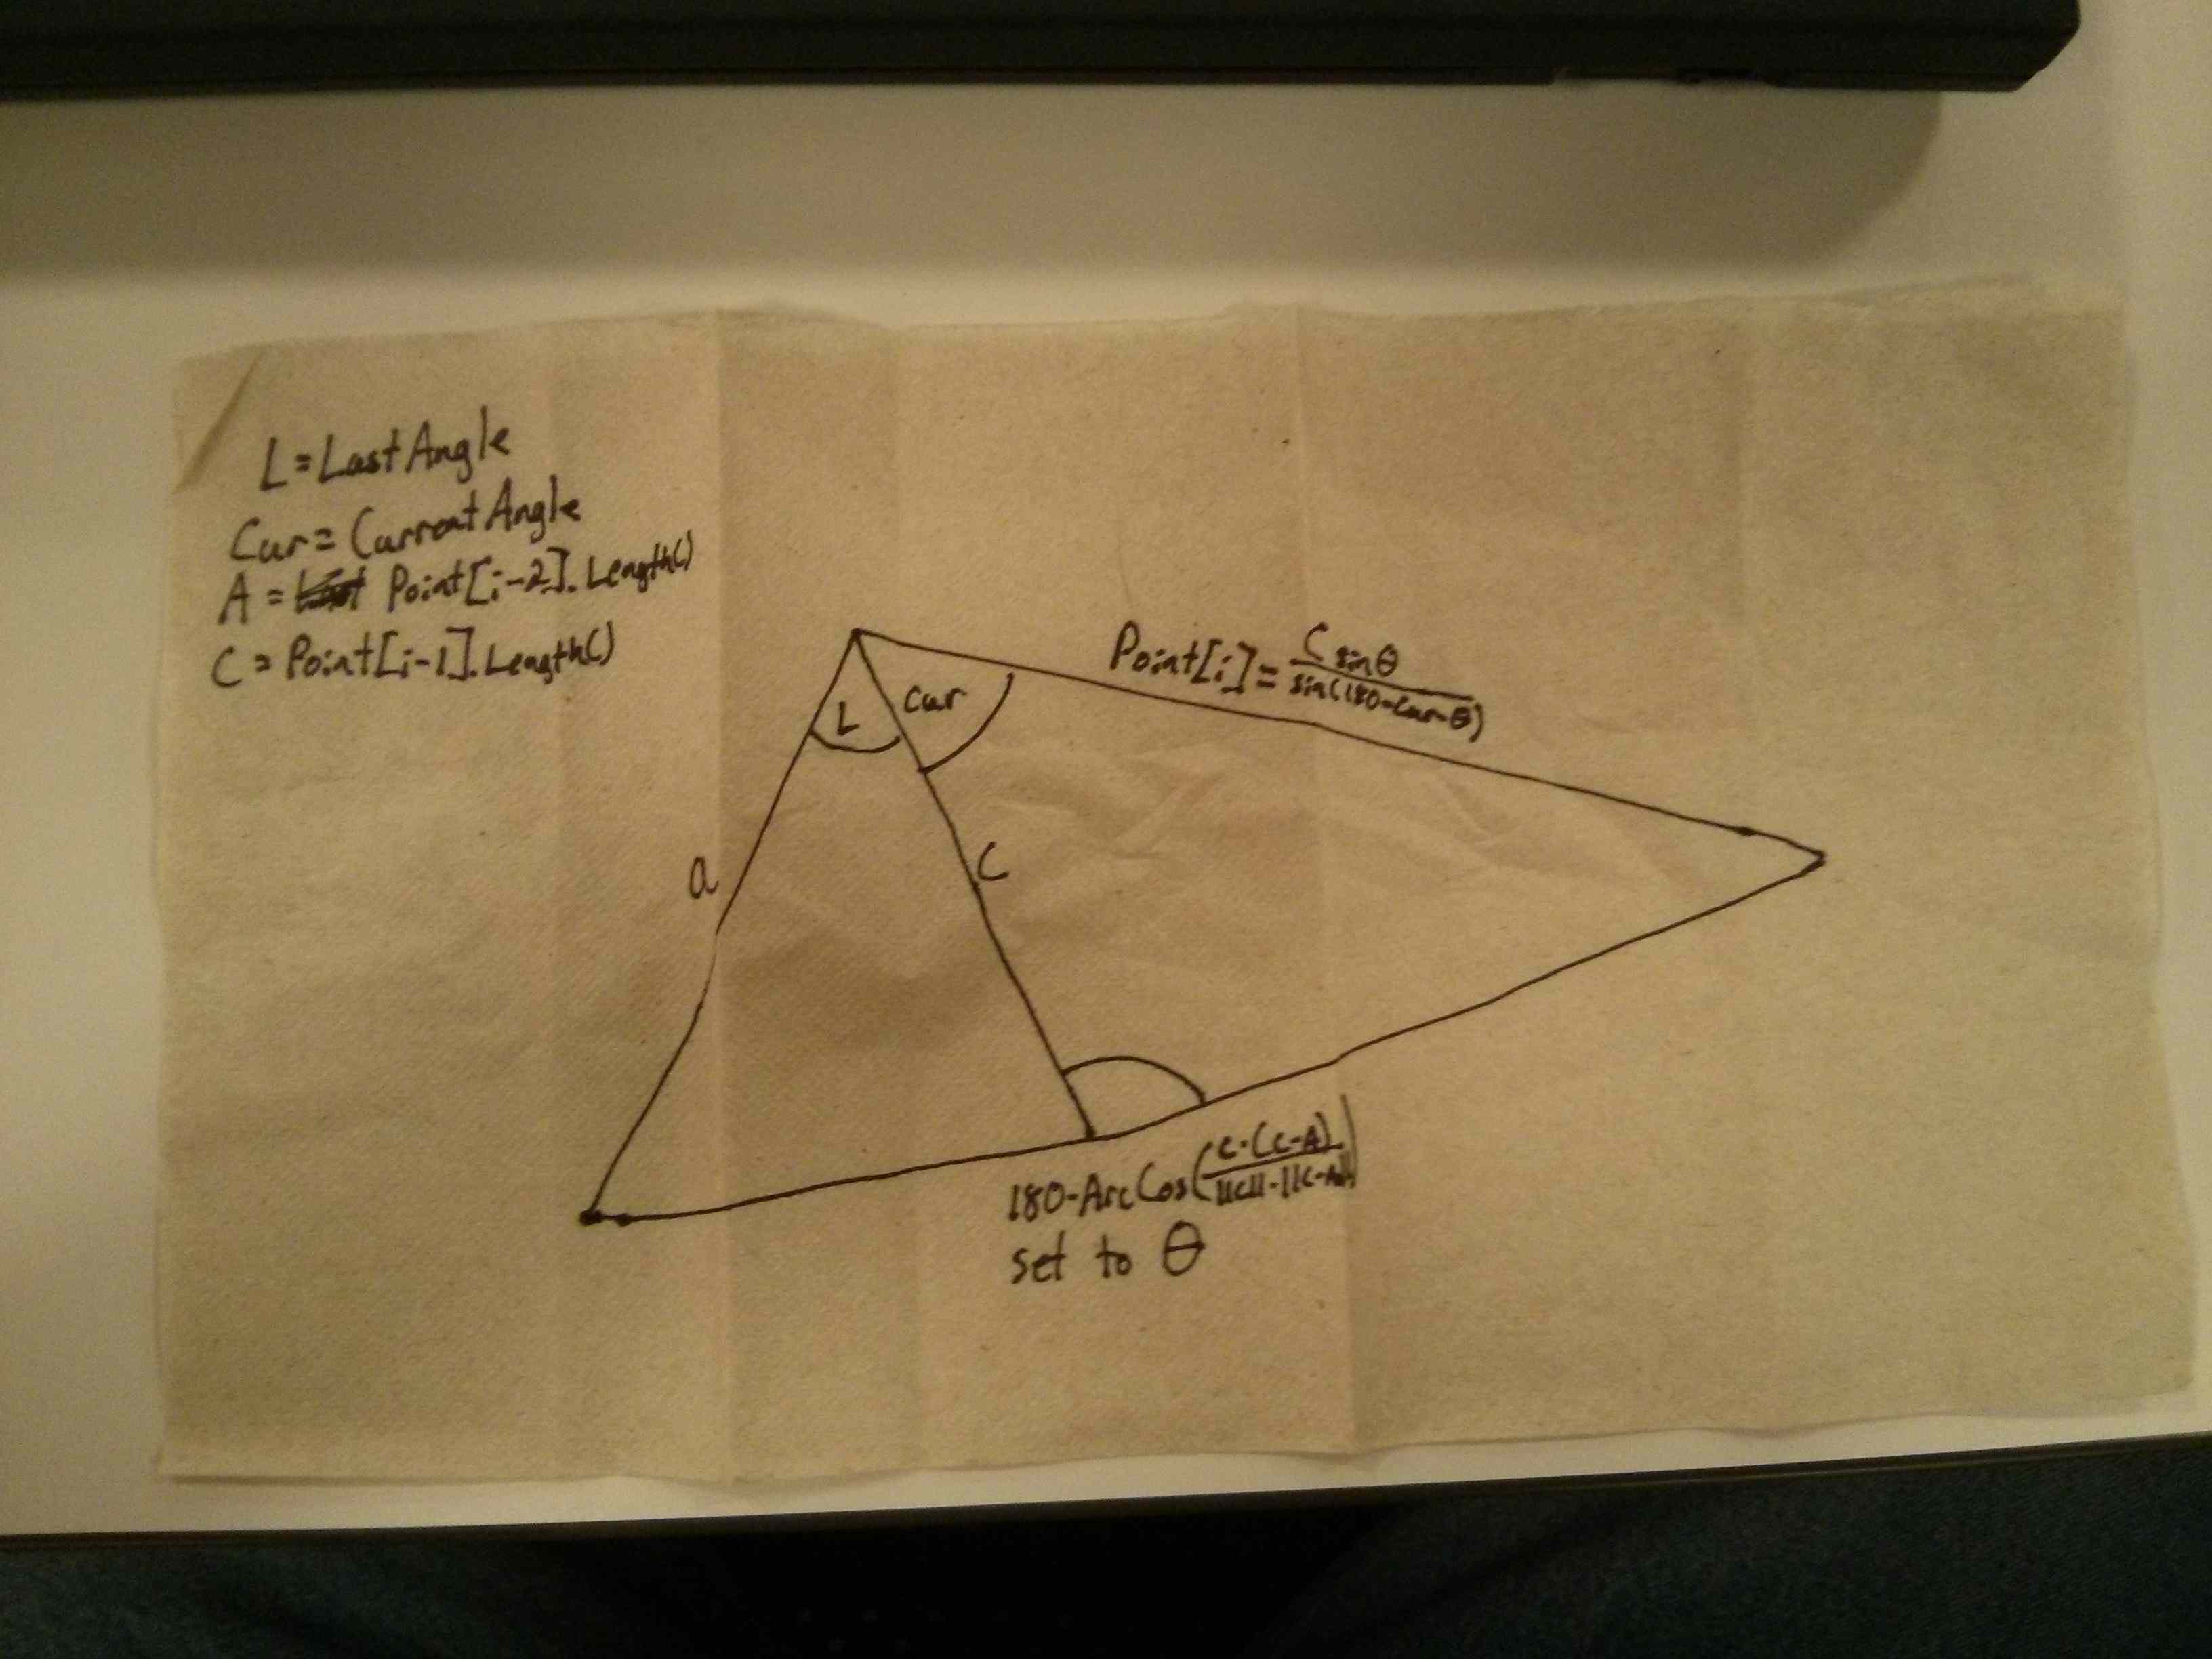 L = Last Angle
Cur = Current Angle
A = Point[i-2].Length()
C = Point[i-1].Length()
Point[i] = C sin θ / sin(180-Cur-θ)
L
Cur
a
C
180-ArcCos(C·(C-A) / ||C||·||C-A||)
set to θ